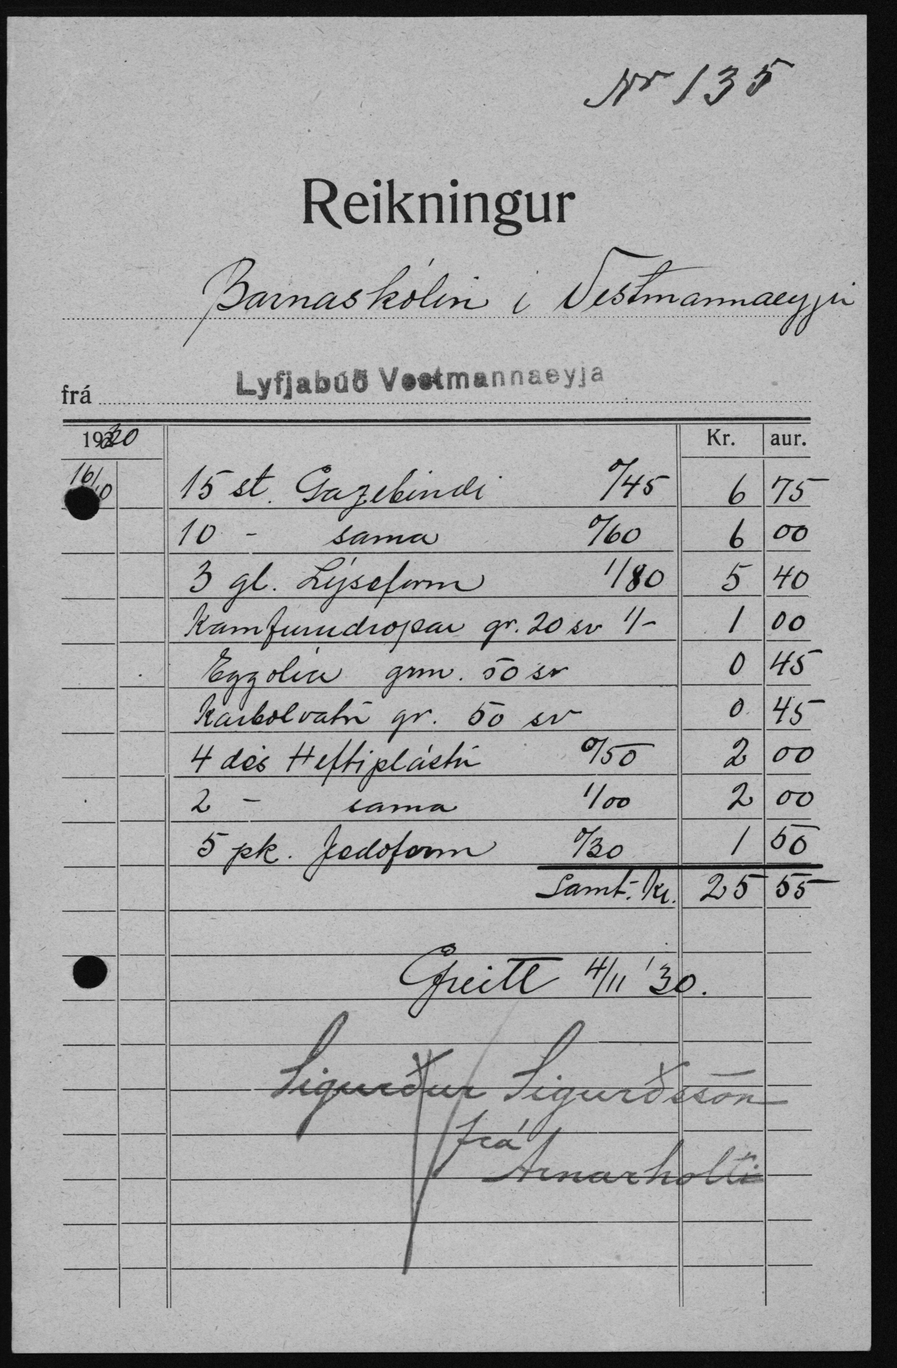 Nr 135
Reikningur
Barnaskólin í Vestmannaeyju
frá Lyfjabúð Vestmannaeyja
1930 Kr. aur.
16/10 15 st. Gazebindi 0/45 6 75
10 - sama 0/60 6 00
3 gl. Lýsoform 1/80 5 40
Kamfurudropar gr. 20 sv 1/- 1 00
Eggolia grm. 50 sv 0 45
Karbolvatn gr. 50 sv 0 45
4 dós Heftiplástur 0/50 2 00
2 - sama 1/00 2 00
5 pk. Jodoform 0/30 1 50
Samt. Kr. 25 55
Greitt 4/11 '30.
Sigurður Sigurðsson
frá
Arnarholti